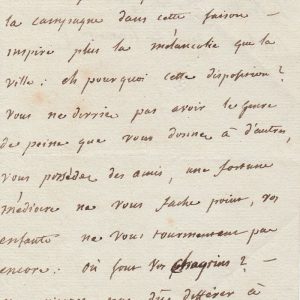 la campagne dans cette saison —
inspire plus la mélancolie que la
ville: eh pourquoi cette disposition?
vous ne devriés pas avoir le genre
de peine que vous donne à d'autres,
vous possedez des amis, une fortune
médiocre ne vous fache point, vos
enfants ne vous tourmentent pas
encore: où sont vos chagrins? —
que différer à